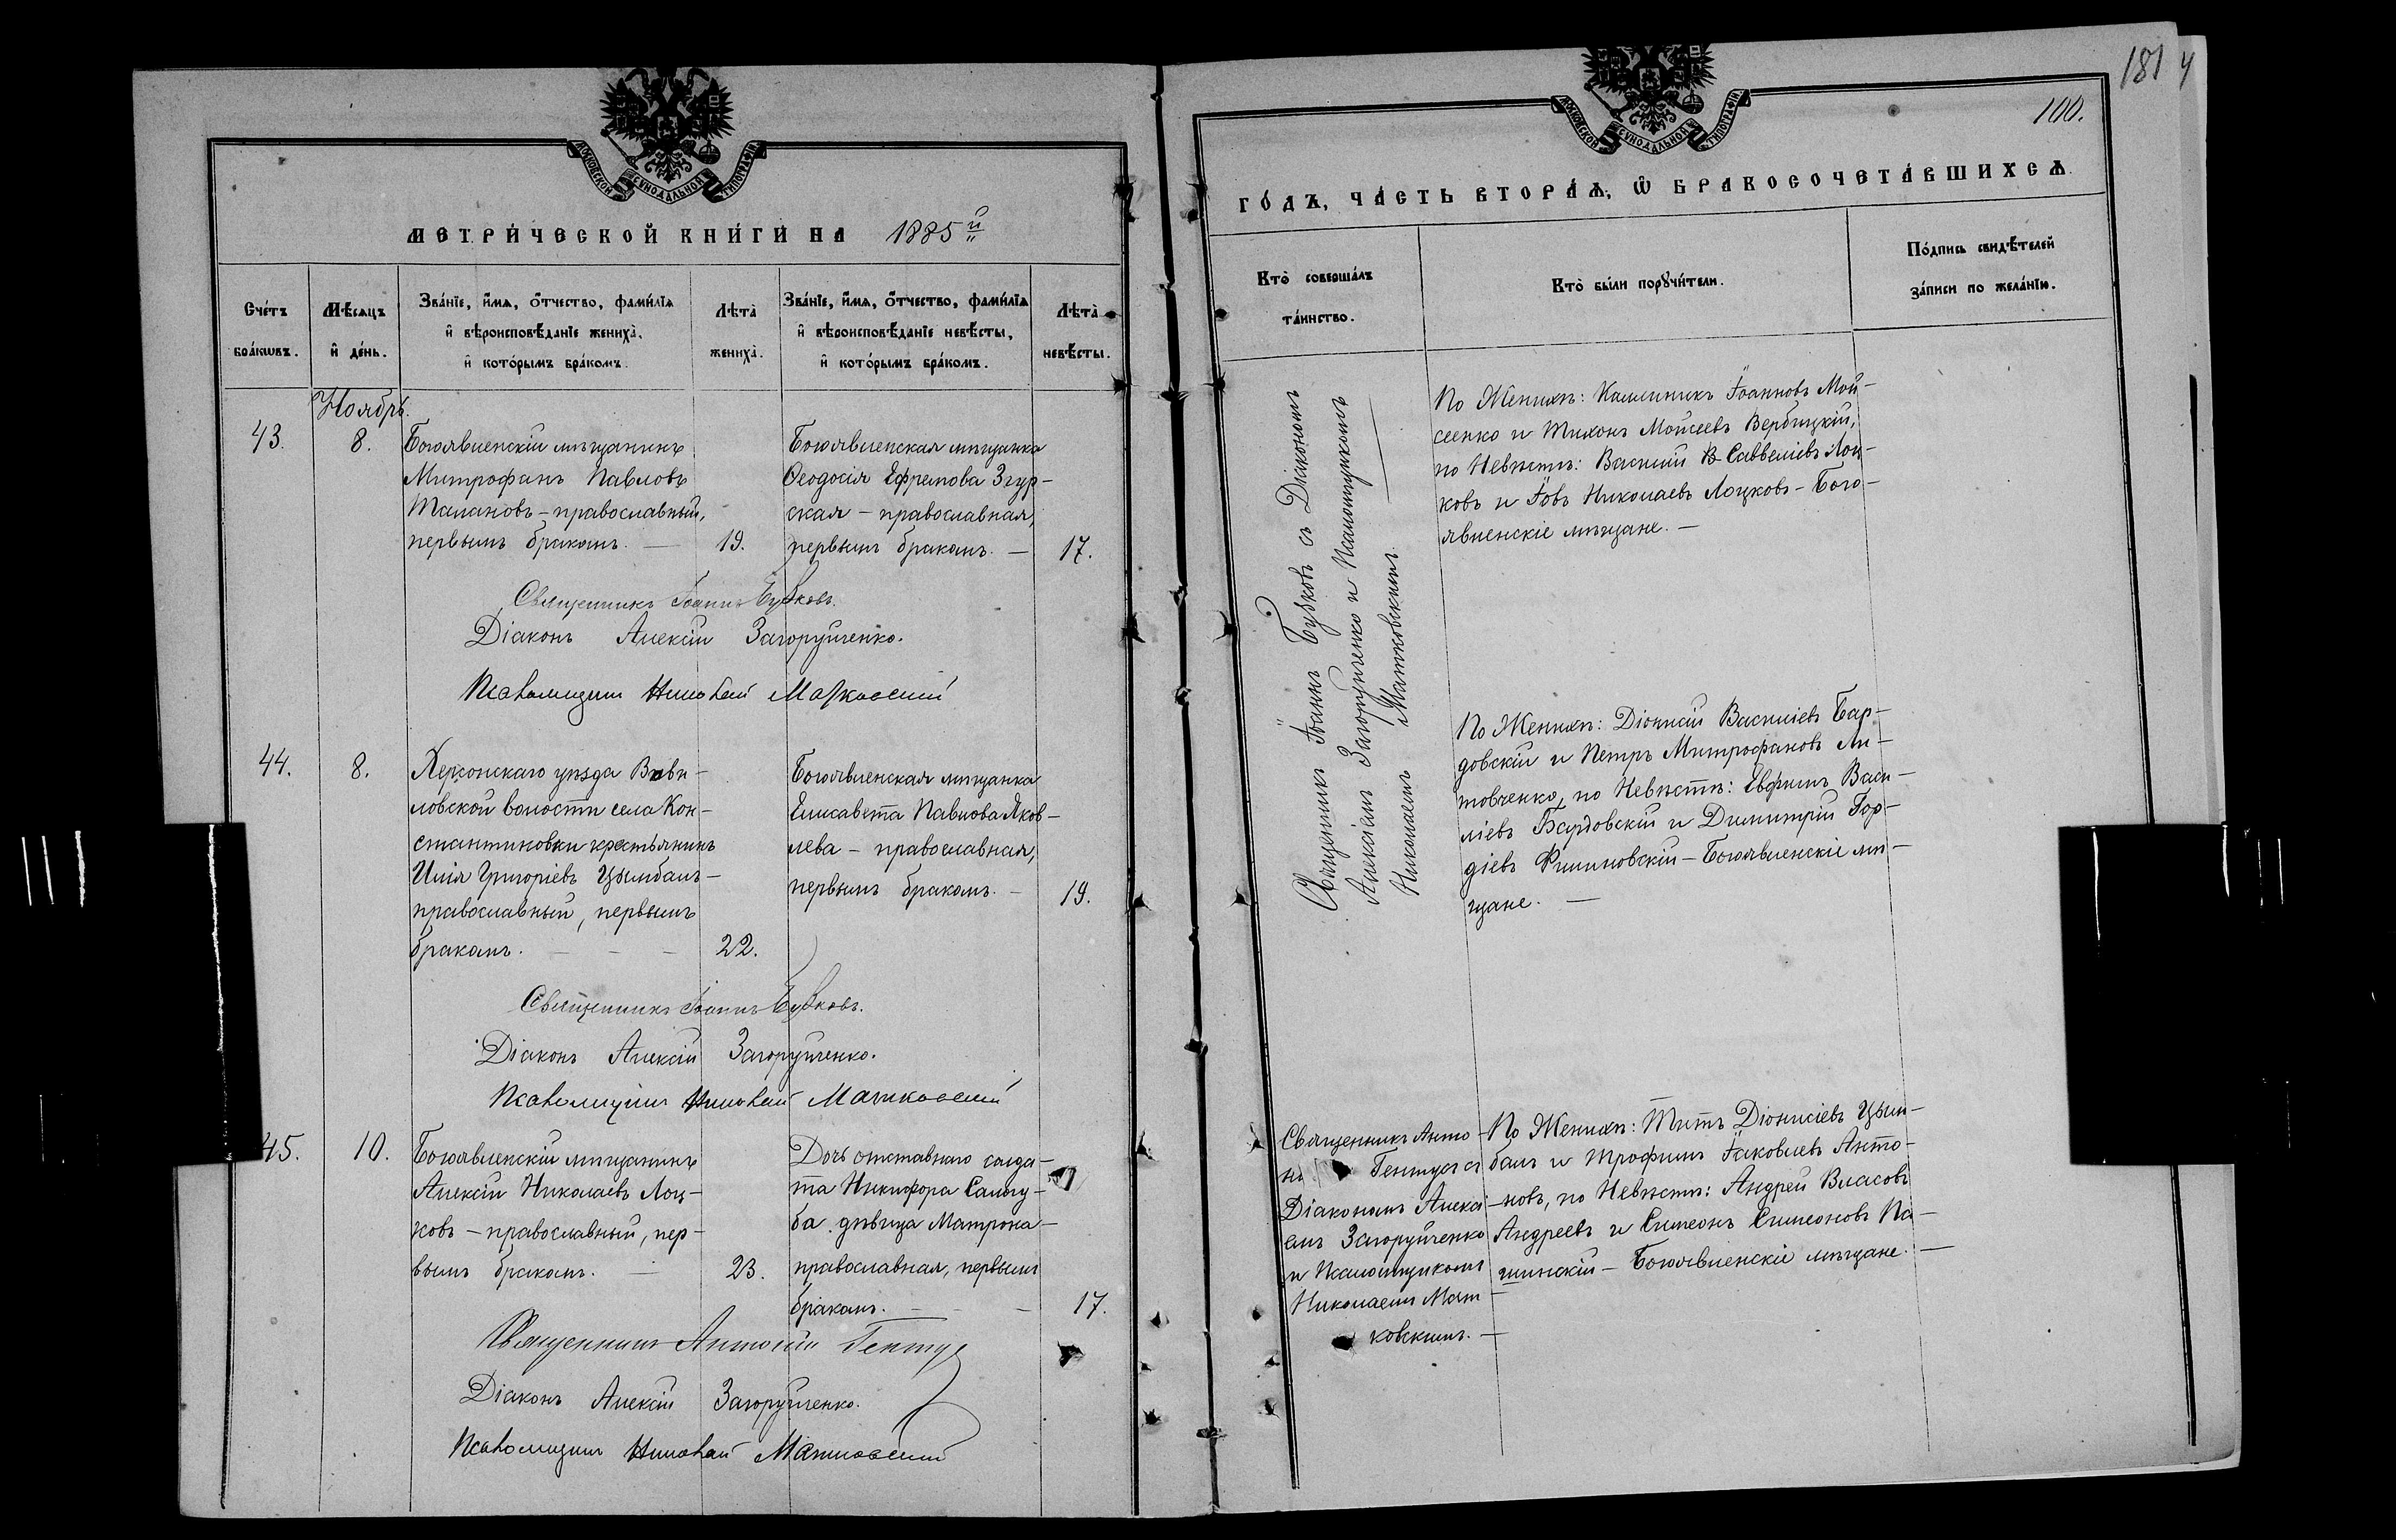 МОСКОВСКОЙ СѴНОДАЛЬНОЙ ТИПОГРАФІИ
МЕТРИ́ЧЕСКОЙ КНИ́ГИ НА 1885й
Сче́тъ бра́кѡвъ.
Мѣ́сяцъ и҆ де́нь.
Зва́нїе, и҆́мѧ, ѻ҆́тчество, фами́лїѧ
и҆ вѣроисповѣ́данїе жениха̀,
и҆ кото́рымъ бра́комъ.
Лѣта̀ жениха̀.
Зва́нїе, и҆́мѧ, ѻ҆́тчество, фами́лїѧ
и҆ вѣроисповѣ́данїе невѣ́сты,
и҆ кото́рымъ бра́комъ.
Лѣта̀ невѣ́сты.
Ноябрь.
43.
8.
Богоявленскій мѣщанинъ
Митрофанъ Павловъ
Талановъ – православный,
первымъ бракомъ. —
19.
Богоявленская мѣщанка
Ѳеодосія Ефремова Згур-
ская – православная,
первымъ бракомъ. —
17.
Священникъ Іоаннъ Бубковъ.
Діаконъ Алексій Загоруйченко.
Псаломщикъ Николай Матковскій
44.
8.
Херсонскаго уѣзда
ловской волости села Кон-
стантиновки крестьянинъ
Илія Григоріевъ Цымбалъ –
православный, первымъ
бракомъ. — — —
22.
Богоявленская мѣщанка
Елисавета Павлова Яков-
лева – православная,
первымъ бракомъ. —
19.
Священникъ Іоаннъ Бубковъ.
Діаконъ Алексій Загоруйченко.
Псаломщикъ Николай Матковскій
45.
10.
Богоявленскій мѣщанинъ
Алексій Николаевъ Лоц-
ковъ – православный, пер-
вымъ бракомъ. —
23.
Дочь отставнаго солда-
та Никифора
ба дѣвица Матрона –
православная, первымъ
бракомъ. — —
17.
Священникъ Антоній
Діаконъ Алексій Загоруйченко.
Псаломщикъ Николай Матковскій
181
4
100.
МОСКОВСКОЙ СѴНОДАЛЬНОЙ ТИПОГРАФІИ
ГО́ДЪ, ЧА́СТЬ ВТОРА́Ѧ, Ѡ҆ БРАКОСОЧЕТА́ВШИХСѦ.
Кто̀ соверша́лъ
та́инство.
Кто̀ бы́ли порꙋчи́тели.
По́дпись свидѣ́телей
за́писи по жела́нїю.
Священникъ Іоаннъ Бубковъ съ Діакономъ
Алексіемъ Загоруйченко и Псаломщикомъ
Николаемъ Матковскимъ.
По Женихѣ: Каллиникъ Іоанновъ Мой-
сеенко и Тихонъ Моисеевъ Вербицкій,
по Невѣстѣ: Василій Савеліевъ Лоц-
ковъ и Іовъ Николаевъ Лоцковъ – Бого-
явленскіе мѣщане. —
По Женихѣ: Діонисій Василіевъ Бар-
довскій и Петръ Митрофановъ Ли-
товченко, по Невѣстѣ: Евфимъ Васи-
ліевъ Бардовскій и Димитрій Гор-
діевъ Филиновскій – Богоявленскіе мѣ-
щане. —
Священникъ Анто-
ній съ
Діакономъ Алексі-
емъ Загоруйченко
и Псаломщикомъ
Николаемъ Мат-
ковскимъ. —
По Женихѣ: Титъ Діонисіевъ Цым-
балъ и Трофимъ Іаковлевъ Анто-
новъ, по Невѣстѣ: Андрей Власовъ
Андреевъ и Симеонъ Симеоновъ Па-
шинскій – Богоявленскіе мѣщане. —